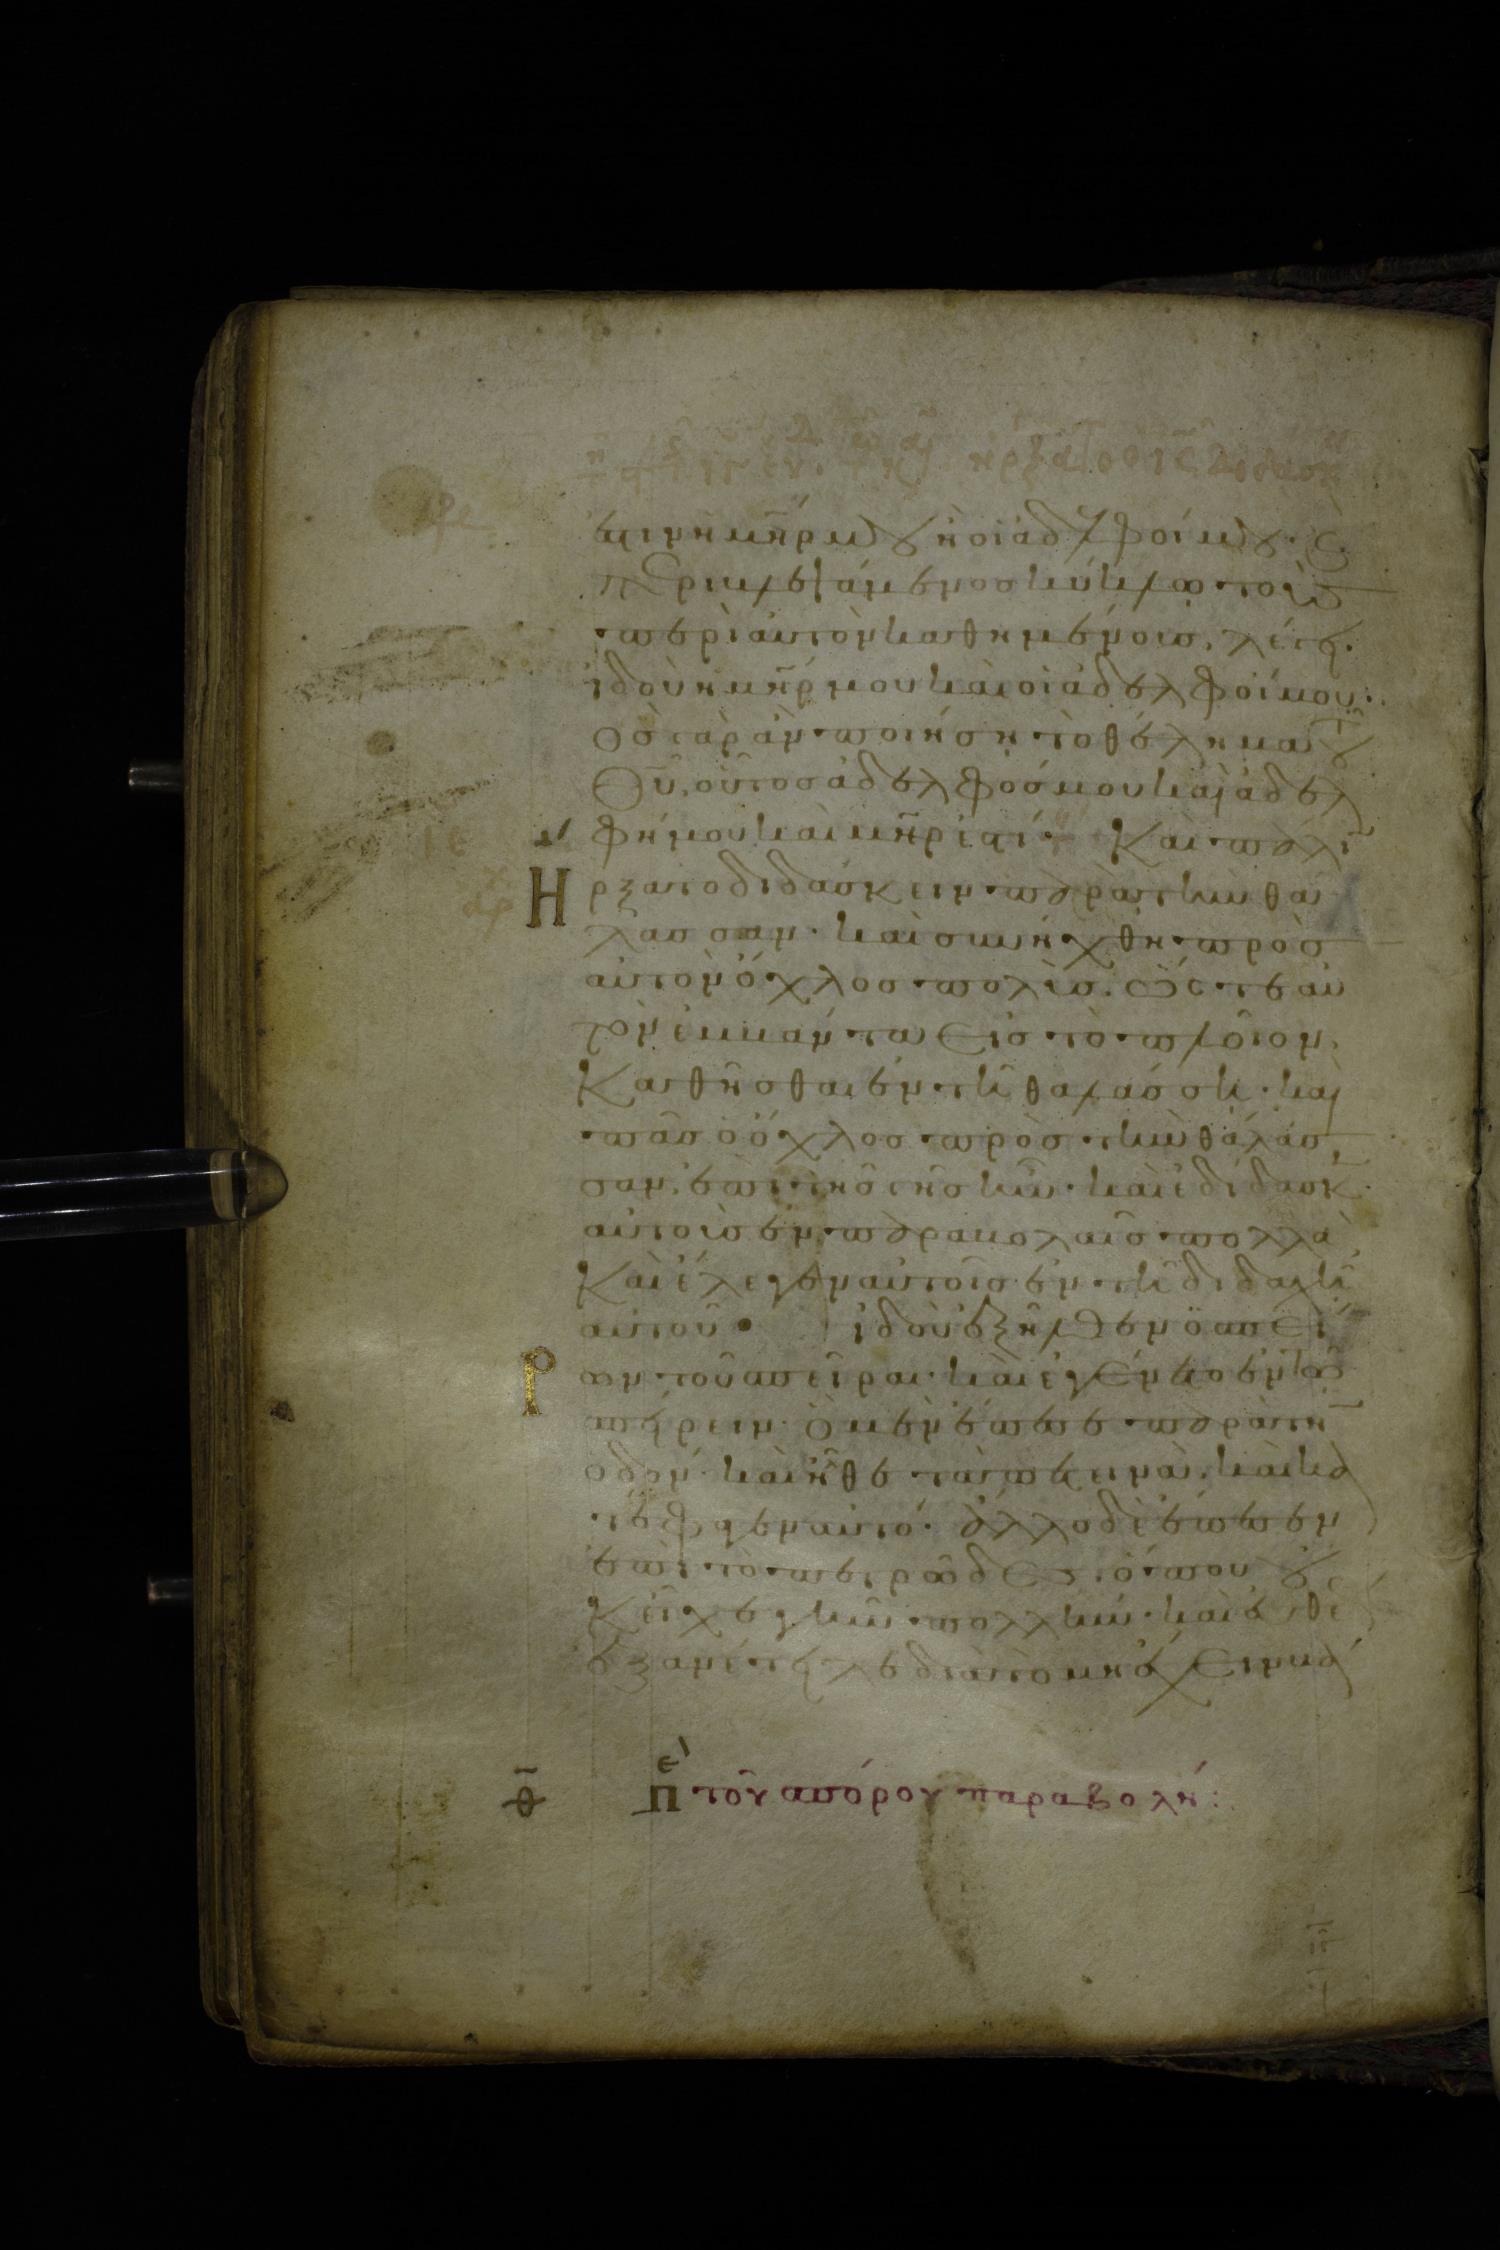 ἐστὶν ἡ μῆρ μου ἢ οἱ ἀδελφοί μου· καὶ
περιβλεψάμενος κύκλῳ τοὺς
περὶ αὐτὸν καθημένους, λέγει·
ἰδοὺ ἡ μῆρ μου καὶ οἱ ἀδελφοί μου·
Ὃς γὰρ ἂν ποιήσῃ τὸ θέλημα τοῦ
Θῦ, οὗτος ἀδελφός μου καὶ ἀδελ
φή μου καὶ μῆρ ἐστί· Καὶ πάλιν
Ηρξατο διδάσκειν παρὰ τὴν θά
λασσαν· καὶ συνήχθη πρὸς
αὐτὸν ὄχλος πολύς. Ὥστε αὐ
τὸν ἐμβάντα εἰς τὸ πλοῖον,
Καθῆσθαι ἐν τῇ θαλάσσῃ· καὶ
πᾶς ὁ ὄχλος πρὸς τὴν θάλασ
σαν, ἐπὶ τῆς γῆς ἦν· καὶ ἐδίδασκεν
αὐτοὺς ἐν παραβολαῖς πολλά
Καὶ ἔλεγεν αὐτοῖς ἐν τῇ διδαχῇ
αὐτοῦ· ἰδοὺ ἐξῆλθεν ὁ σπεί
ρων τοῦ σπεῖραι· καὶ ἐγένετο ἐν τῷ
σπείρειν· ὃ μὲν ἔπεσε παρὰ τὴν
ὁδόν· καὶ ἦλθε τὰ πετεινὰ, καὶ κα
τέφαγεν αὐτό· ἄλλο δὲ ἔπεσεν
ἐπὶ τὸ πετρῶδες, ὅπου οὐκ
εἶχε γῆν πολλήν· καὶ εὐθέως
ἐξανέτειλε διὰ τὸ μὴ ἔχειν βά
ε΄ Π τοῦ σπόρου παραβολή: